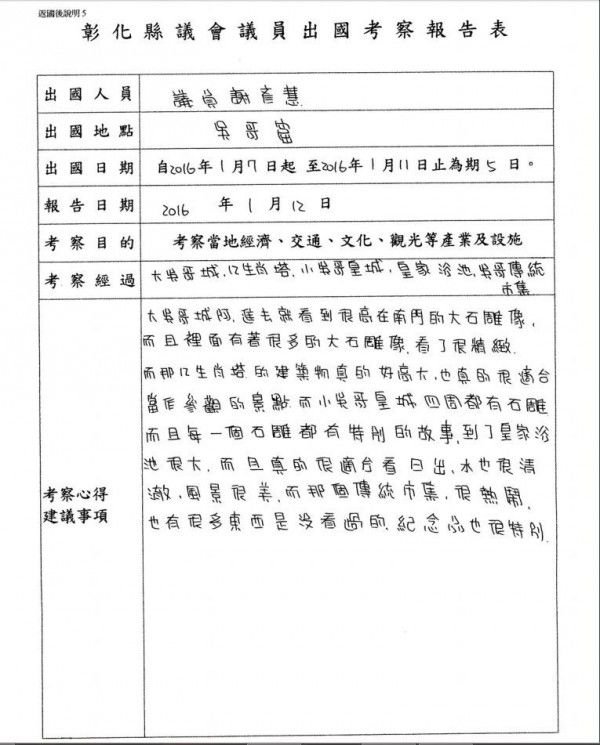 返國後說明5
彰化縣議會議員出國考察報告表
出國人員 議員謝彥慧
出國地點 吳哥窟
出國日期 自2016年1月7日起 至2016年1月11日止為期5日。
報告日期 2016年1月12日
考察目的 考察當地經濟、交通、文化、觀光等產業及設施
考察經過 大吳哥城,12生肖塔,小吳哥皇城,皇家浴池,吳哥傳統
市集
考察心得
建議事項
大吳哥城阿,進去就看到很高在南門的大石雕像,
而且裡面有著很多的大石雕像,看了很精緻.
而那12生肖塔的建築物真的好高大,也真的很適合
當作參觀的景點.而小吳哥皇城四周都有石雕
而且每一個石雕都有特別的故事,到了皇家浴
池很大,而且真的很適合看日出,水也很清
澈,風景很美,而那個傳統市集,很熱鬧,
也有很多東西是沒看過的,紀念品也很特別.